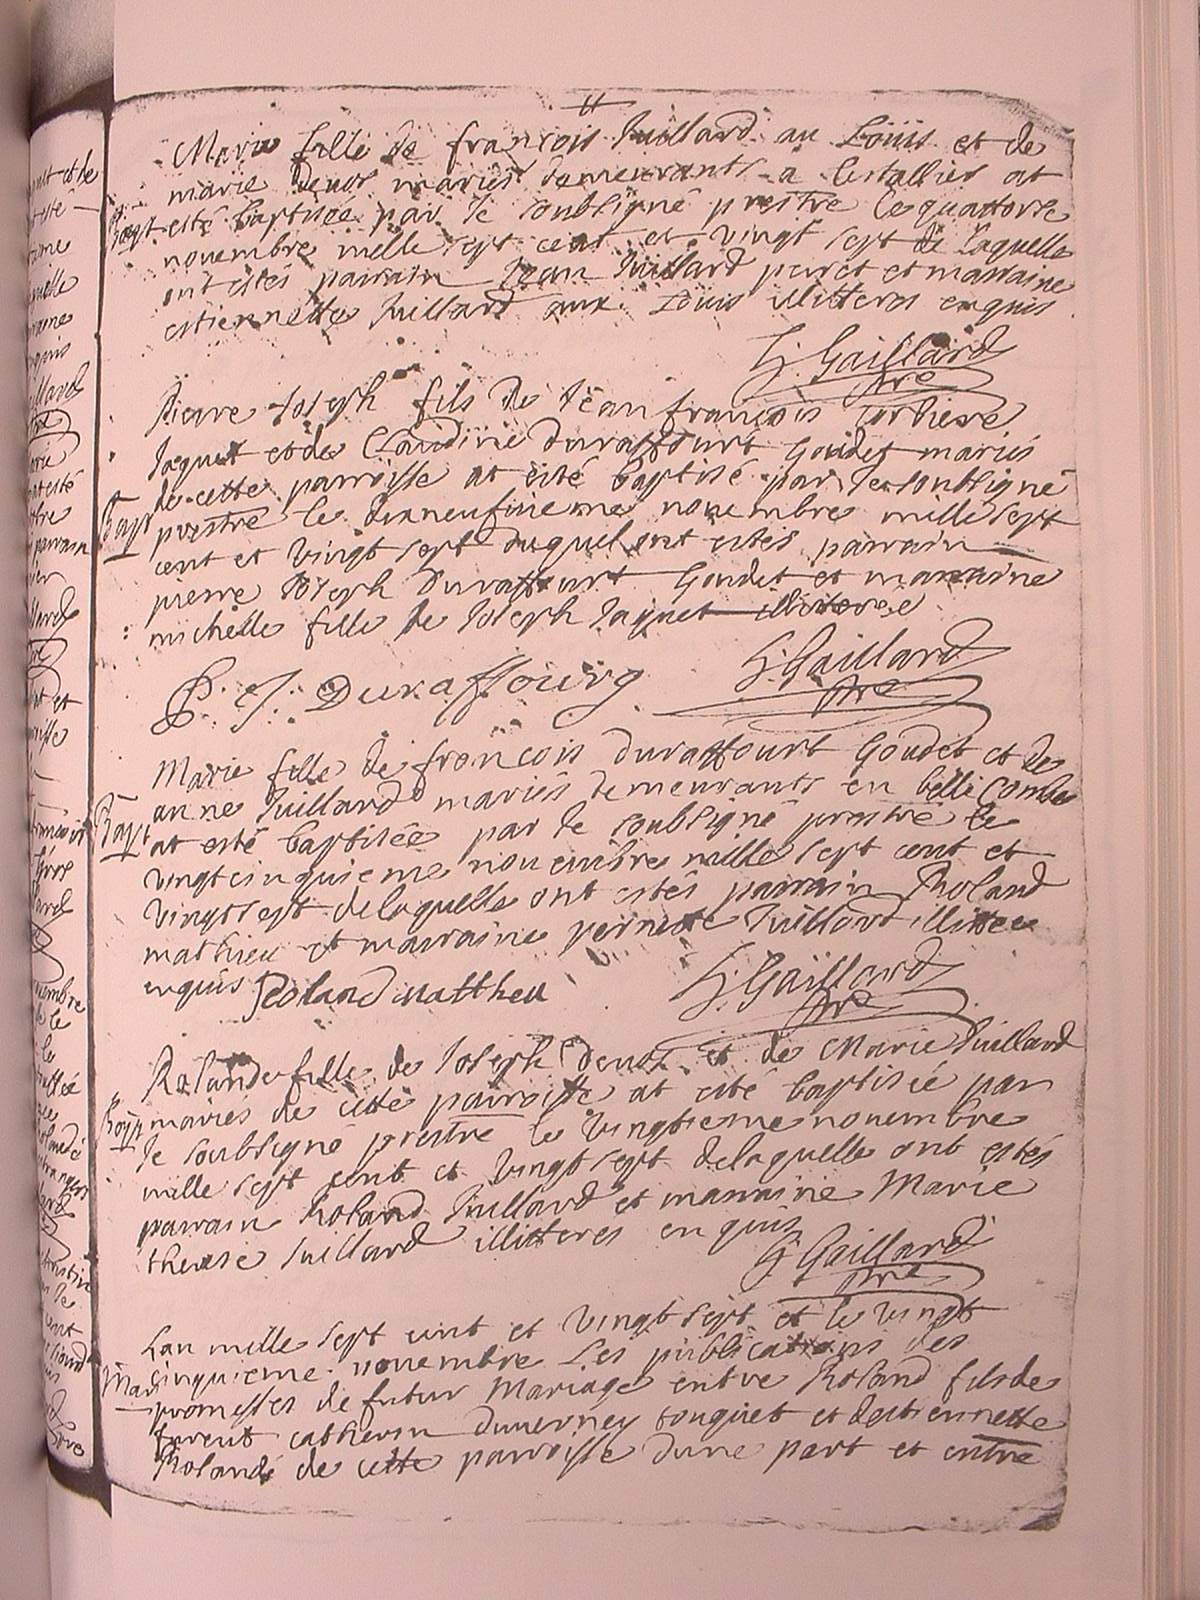 Marie fille de francois Juillard au Loüis et de
marie Denos mariés demeurants a Lestallier at
Bapt esté baptisée par le soubsigné prestre le quattorse
novembre mille sept cent et vingt sept de laquelle
ont estés parrain Jean Juillard et marraine
estiennette Juillard aux Loüis illitteres enquis
G: Gaillard
pre
pierre Joseph fils de Jean francois
Jaquet et de Claudine Duraffourt Goudet mariés
de cette parroisse at esté baptisé par le soubsigné
Bapt prestre le dixneufiieme novembre mille sept
cent et vingt sept duquel ont estés parrain
pierre Joseph Duraffourt Goudet et marraine
michelle fille de Joseph Jaquet illiteree
P. J. Duraffourg
G: Gaillard
pre
Marie fille de francois Duraffourt Goudet et de
anne Juillard mariés demeurants en belle Combe
Bapt at esté baptisée par le soubsigné prestre le
vingtcinquieme novembre mille sept cent et
vingtsept de laquelle ont estés parrain Roland
mathieu et marraine pernette Juillard
enquis Roland Mattheu
G: Gaillard
pre
Rolande fille de Joseph Denos et de Marie Juillard
Bapt mariés de cette parroisse at esté baptisée par
le soubsigné prestre le vingtieme novembre
mille sept cent et vingt sept de laquelle ont estés
parrain Roland Juillard et marraine Marie
therese Juillard illitteres enquis
G: Gaillard
pre
Lan mille sept cent et vingt sept et le vingt
cinquieme novembre Les publications des
Mar promesses de futur Mariage entre Roland fils de
catherin Duverney touquet et destiennette
Rolandé de cette parroisse dune part et entre